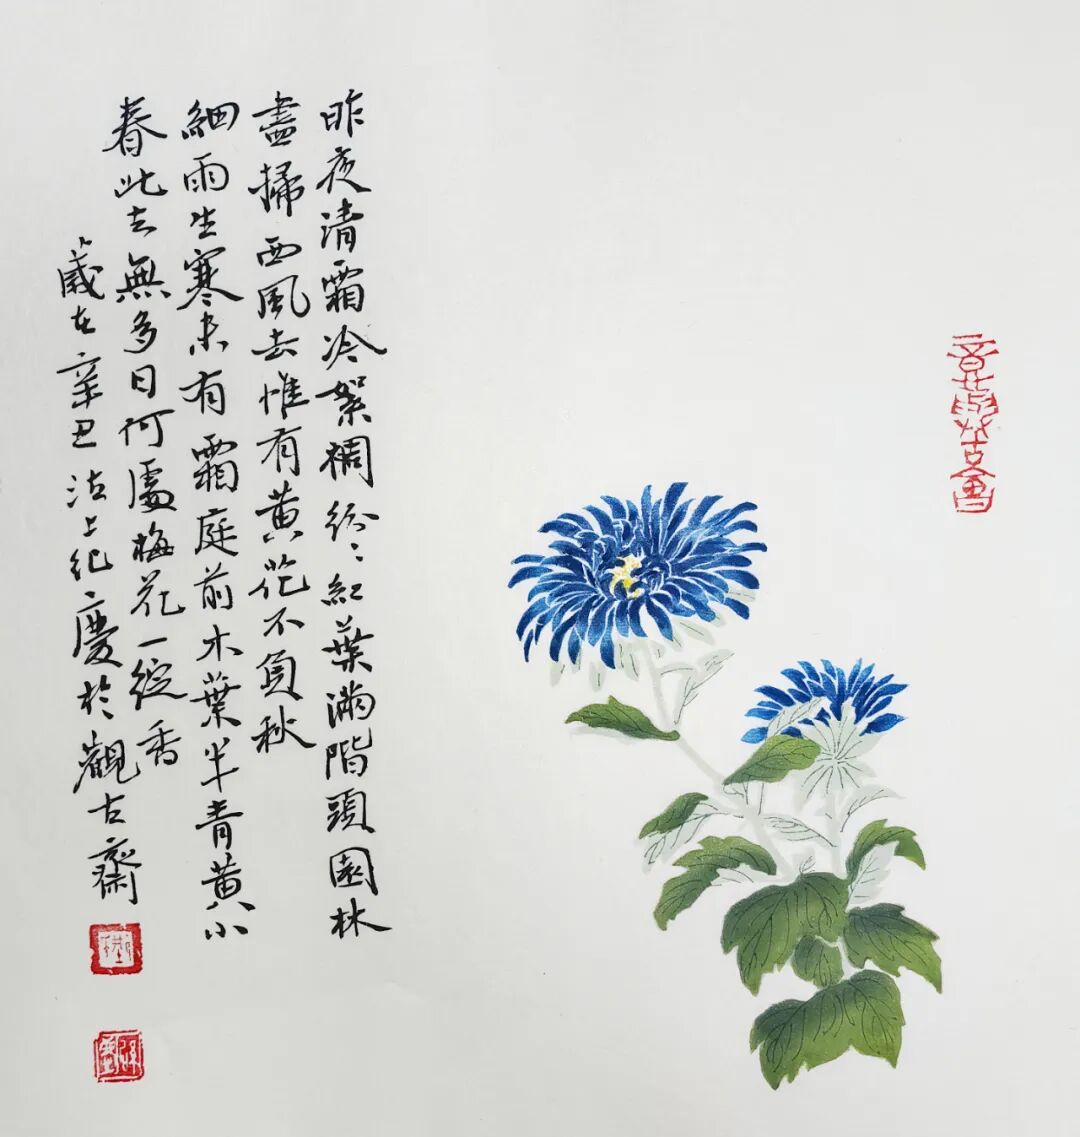 意與古會
昨夜清霜冷絮裯紛〻紅葉滿階頭園林
盡掃西風去惟有黃花不負秋
細雨生寒未有霜庭前木葉半青黃小
春此去無多日何處梅花一綻香
歲在辛丑沽上紀慶於觀古齋